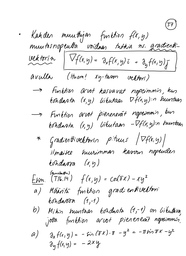 57
• Kahden muuttujan funktion f(x,y)
muutosnopeutta voidaan tutkia ns. gradientti-
vektorin ∇f(x,y) = ∂ₓf(x,y) i + ∂ᵧf(x,y) j
avulla (Huom! xy-tason vektori)
→ Funktion arvot kasvavat nopeimmin, kun
kohdasta (x,y) liikutaan ∇f(x,y):n suuntaan
→ Funktion arvot pienenevät nopeimmin, kun
kohdasta (x,y) liikutaan -∇f(x,y):n suuntaan
* Gradienttivektorin pituus |∇f(x,y)|
ilmaisee suurimman kasvun nopeuden
kohdassa (x,y)
Esim. f(x,y) = cos(πx) - xy²
a) Määritä funktion gradienttivektori
kohdassa (1,-1)
b) Mihin suuntaan kohdasta (1,-1) on liikuttava,
jotta funktion arvot pienenevät nopeimmin.
a) ∂ₓf(x,y) = -sin(πx)·π - y² = -πsinπx - y²
∂ᵧf(x,y) = -2xy